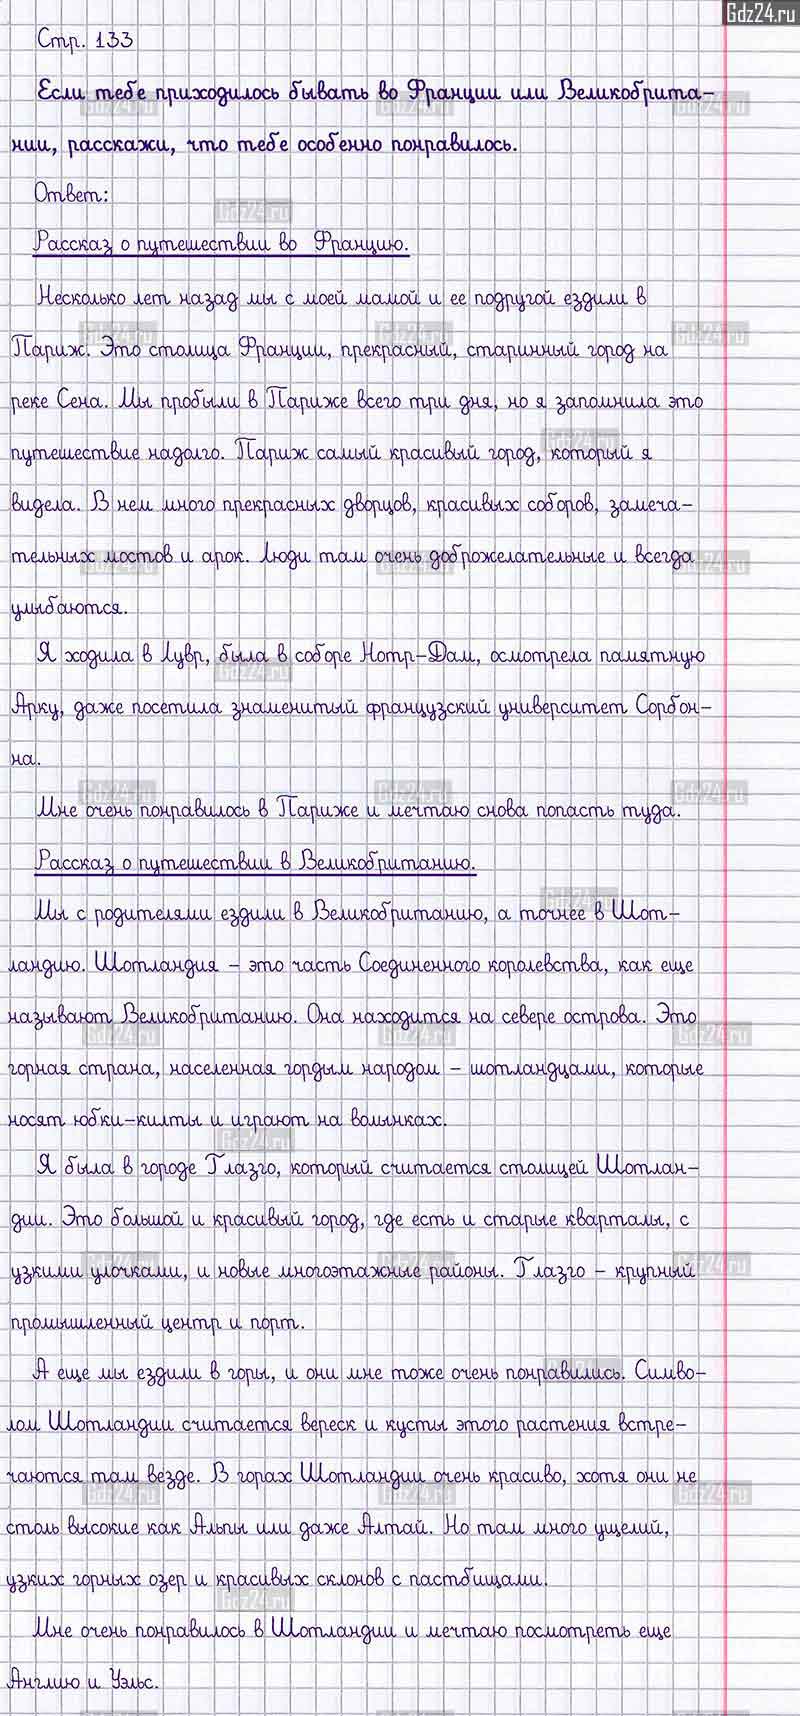 Gdz24.ru
Стр. 133
Если тебе приходилось бывать во Франции или Великобрита-
нии, расскажи, что тебе особенно понравилось.
Ответ:
Рассказ о путешествии во Францию.
Несколько лет назад мы с моей мамой и ее подругой ездили в
Париж. Это столица Франции, прекрасный, старинный город на
реке Сена. Мы пробыли в Париже всего три дня, но я запомнила это
путешествие надолго. Париж самый красивый город, который я
видела. В нем много прекрасных дворцов, красивых соборов, замеча-
тельных мостов и арок. Люди там очень доброжелательные и всегда
улыбаются.
Я ходила в Лувр, была в соборе Нотр-Дам, осмотрела памятную
Арку, даже посетила знаменитый французский университет Сорбон-
на.
Мне очень понравилось в Париже и мечтаю снова попасть туда.
Рассказ о путешествии в Великобританию.
Мы с родителями ездили в Великобританию, а точнее в Шот-
ландию. Шотландия - это часть Соединенного королевства, как еще
называют Великобританию. Она находится на севере острова. Это
горная страна, населенная гордым народом - шотландцами, которые
носят юбки-килты и играют на волынках.
Я была в городе Глазго, который считается столицей Шотлан-
дии. Это большой и красивый город, где есть и старые кварталы, с
узкими улочками, и новые многоэтажные районы. Глазго - крупный
промышленный центр и порт.
А еще мы ездили в горы, и они мне тоже очень понравились. Симво-
лом Шотландии считается вереск и кусты этого растения встре-
чаются там везде. В горах Шотландии очень красиво, хотя они не
столь высокие как Альпы или даже Алтай. Но там много ущелий,
узких горных озер и красивых склонов с пастбищами.
Мне очень понравилось в Шотландии и мечтаю посмотреть еще
Англию и Уэльс.